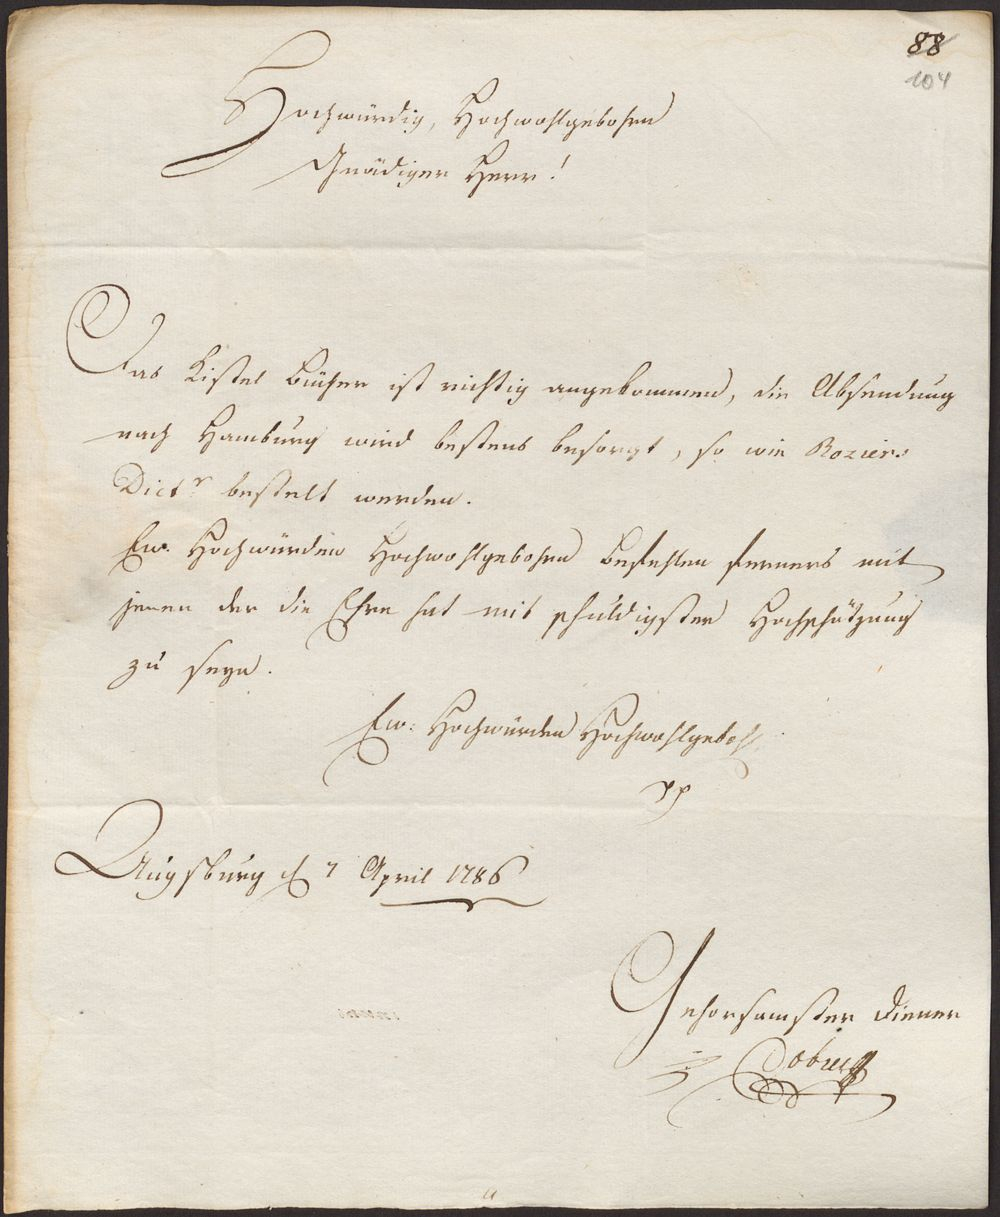 88
104
Hochwürdig, Hochwohlgebohrn
Gnädiger Herr!
Das Kistel Bücher ist richtig angekommen, die Absendung
nach Hamburg wird bestens besorgt, so wie Roziers
Dictr bestelt werden.
Euer Hochwürden Hochwohlgebohrn befehlen ferners mit
jenen der die Ehre hat mit schuldigster Hochschätzung
zu seyn.
Ew: Hochwürden Hochwohlgeboh
pp
Augsburg d 7 April 1786
Gehorsamster Diener